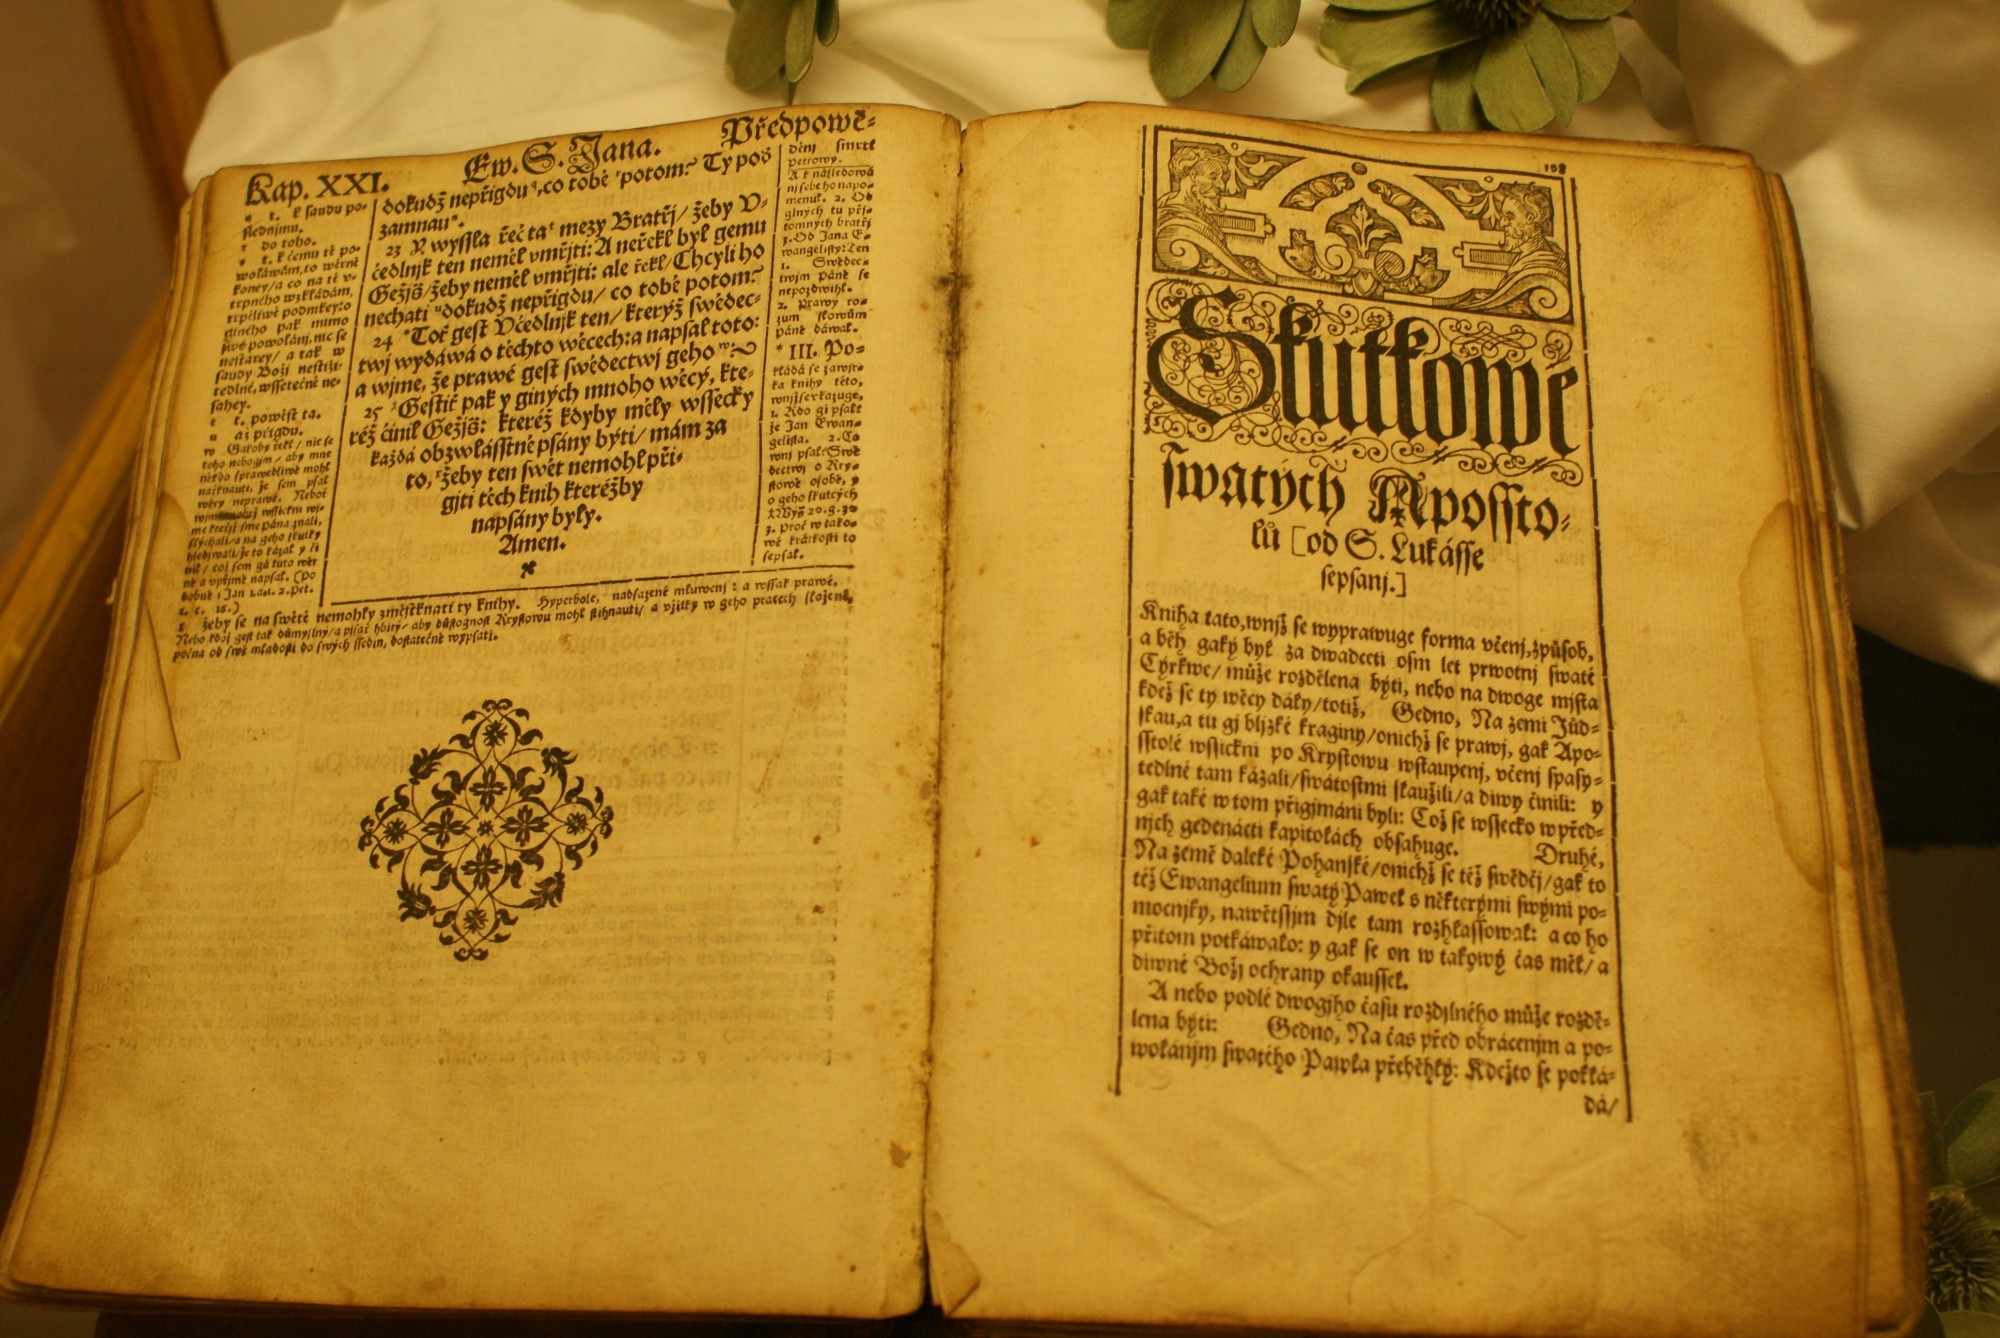 Kap. XXI.
Ew. S. Jana.
Předpowě-
a t. k saudu po-
slednjmu.
r do toho.
s t. k čemu tě po-
woláwám, to wěrně
koney / a co na tě v-
trpného wzkládám,
trpěliwě podnikey: o
giného pak mimo
swé powolánj, nic se
nestarey / a tak w
saudy Boží nestiži-
tedlné, wssetečně ne-
sahey.
t t. powěst ta.
u až přigdu.
w Gakoby řekl / nic se
toho nebogjm / aby mne
někdo sprawedliwě mohl
nařknauti, že sem psal
wěcy neprawé. Neboť
wssickni wj-
me kteřjž sme Pána znali,
slýchali / a na geho skutky
hleděwali / že to kázal y či
nil / což sem gá tuto wěr
ně a vpřjmě napsal. (Po
dobně 1 Jan 1.a.1. 2.Pet.
1. c. 16.)
dokudž nepřigdu, co tobě potom? Ty poď
zamnau.
23 Y wyssla řeč ta mezy Bratřj / žeby V-
čedlnjk ten neměl vmřjti: A neřekl byl gemu
Gežjš / žeby neměl vmřjti: ale řekl / Chcyli ho
nechati dokudž nepřigdu / co tobě potom?
24 Toť gest Včedlnjk ten / kterýž swědec-
twj wydáwá o těchto wěcech: a napsal toto:
a wjme, že prawé gest swědectwj geho
25 Gestiť pak y giných mnoho wěcý, kte-
réž činil Gežjš: kteréž kdyby měly wssecky
každá obzwlásstně psány býti / mám za
to, žeby ten swět nemohl při-
gjti těch knih kteréžby
napsány byly.
Amen.
děnj smrti
Petrowy.
A k následowá
nj sebe ho napo-
menul. 2. Od
giných tu přj-
tomných bratřj
3. Od Jana E-
wangelisty: Ten
1. Swědec-
twjm Páně se
nepozdwihl.
2. Prawý ro-
zum slowům
Páně dáwal.
* III. Po-
kládá se zawjr-
ka knihy této,
wnjžse vkazuge,
1. Kdo gi psal:
že Jan Ewan-
gelista. 2. Co
wnj psal: Swě
dectwj o Kry-
stowě osobě, y
o geho skutcých
Wyš 20. g. 30
3. Proč w tako-
wé krátkosti to
sepsal.
t žeby se na swětě nemohly změstknati ty knihy. Hyperbole, nadsazené mluwenj: a wssak prawé.
Nebo kdož gest tak důmyslný / a pjsař hbitý / aby důstognost Krystowu mohl stihnauti / a vžitky w geho pracech složené,
počna od swé mladosti do swých ssedin, dostatečně wypsati.
198
Skutkowé
swatých Apossto-
lů [od S. Lukásse
sepsanj.]
Kniha tato, wnjž se wyprawuge forma včenj, způsob,
a běh gaký byl za dwadceti osm let prwotnj swaté
Cýrkwe / může rozdělena býti, nebo na dwoge mjsta
kdež se ty wěcy dály / totiž, Gedno, Na zemi Jůd-
skau, a tu gj blizké kraginy / onichž se prawj, gak Apo-
sstolé wssickni po Krystowu wstaupenj, včenj spasy-
tedlné tam kázali / swátostmi slaužili / a diwy činili: y
gak také w tom přigjmáni byli: Což se wssecko w před-
njch gedenácti kapitolách obsahuge. Druhé,
Na země daleké Pohanské / onichž se též swědčj / gak to
též Ewangelium swatý Pawel s některými swými po-
mocnjky, nawětssjm djle tam rozhlassowal: a co ho
přitom potkáwalo: y gak se on w takowý čas měl / a
diwné Božj ochrany okaussel.
A nebo podlé dwogjho času rozdjlného může rozdě-
lena býti: Gedno, Na čas před obrácenjm a po-
wolánjm swatého Pawla přeběhlý: Kdežto se poklá-
dá /